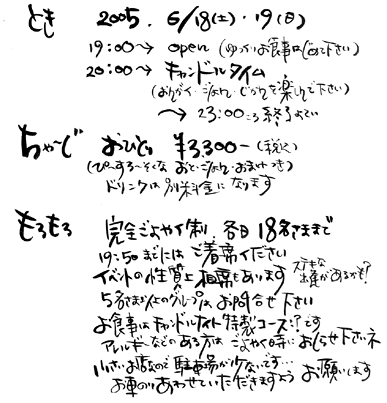 とき 2005. 6/18(土)・19(日)
19:00〜→ open (ゆっくりお食事はじめて下さい)
20:00〜→ キャンドルタイム
(おんがく・じょうねん・じかんを楽しんで下さい)
〜→ 23:00ころ終了よてい
ちゃーじ おひとり ¥3,300− (税込)
おと・おまけつき)
ドリンクは別料金になります
もろもろ 完全ごよやく制、各日18名さままで
19:50までにはご着席ください
イベントの性質上相席もあります ステキな出逢があるかも?
5名さま以上のグループはお問合せ下さい
お食事はキャンドルナイト特製コース?です
アレルギーなどのある方はごよやく時におしらせ下さいネ
小さいお店なので駐車場が少ないです…
お車のりあわせていただきますよう お願いします